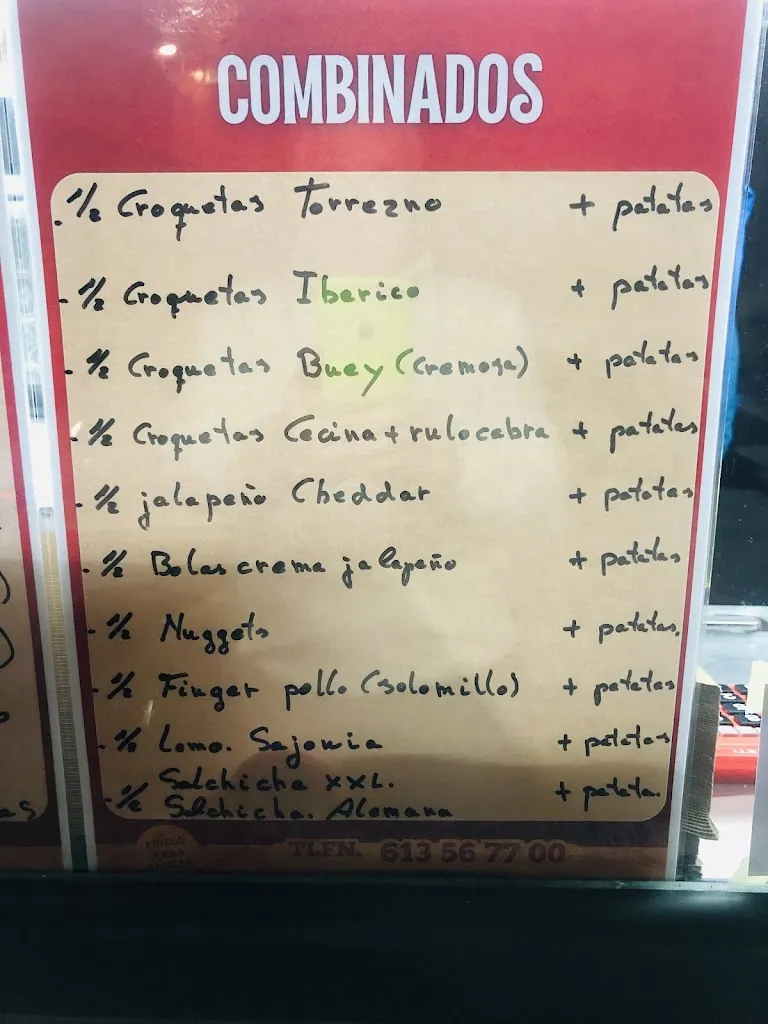 COMBINADOS
- 1/2 Croquetas Torrezno + patatas
- 1/2 Croquetas Iberico + patatas
- 1/2 Croquetas Buey (Cremosa) + patatas
- 1/2 Croquetas Cecina + rulo cabra + patatas
- 1/2 jalapeño Cheddar + patatas
- 1/2 Bolas crema jalapeño + patatas
- 1/2 Nuggets + patatas.
- 1/2 Finger pollo (solomillo) + patatas
- 1/2 Lomo. Sajonia + patatas
Salchicha XXL.
- 1/2 Salchicha. Alemana + patata.
TLFN. 613 56 77 00